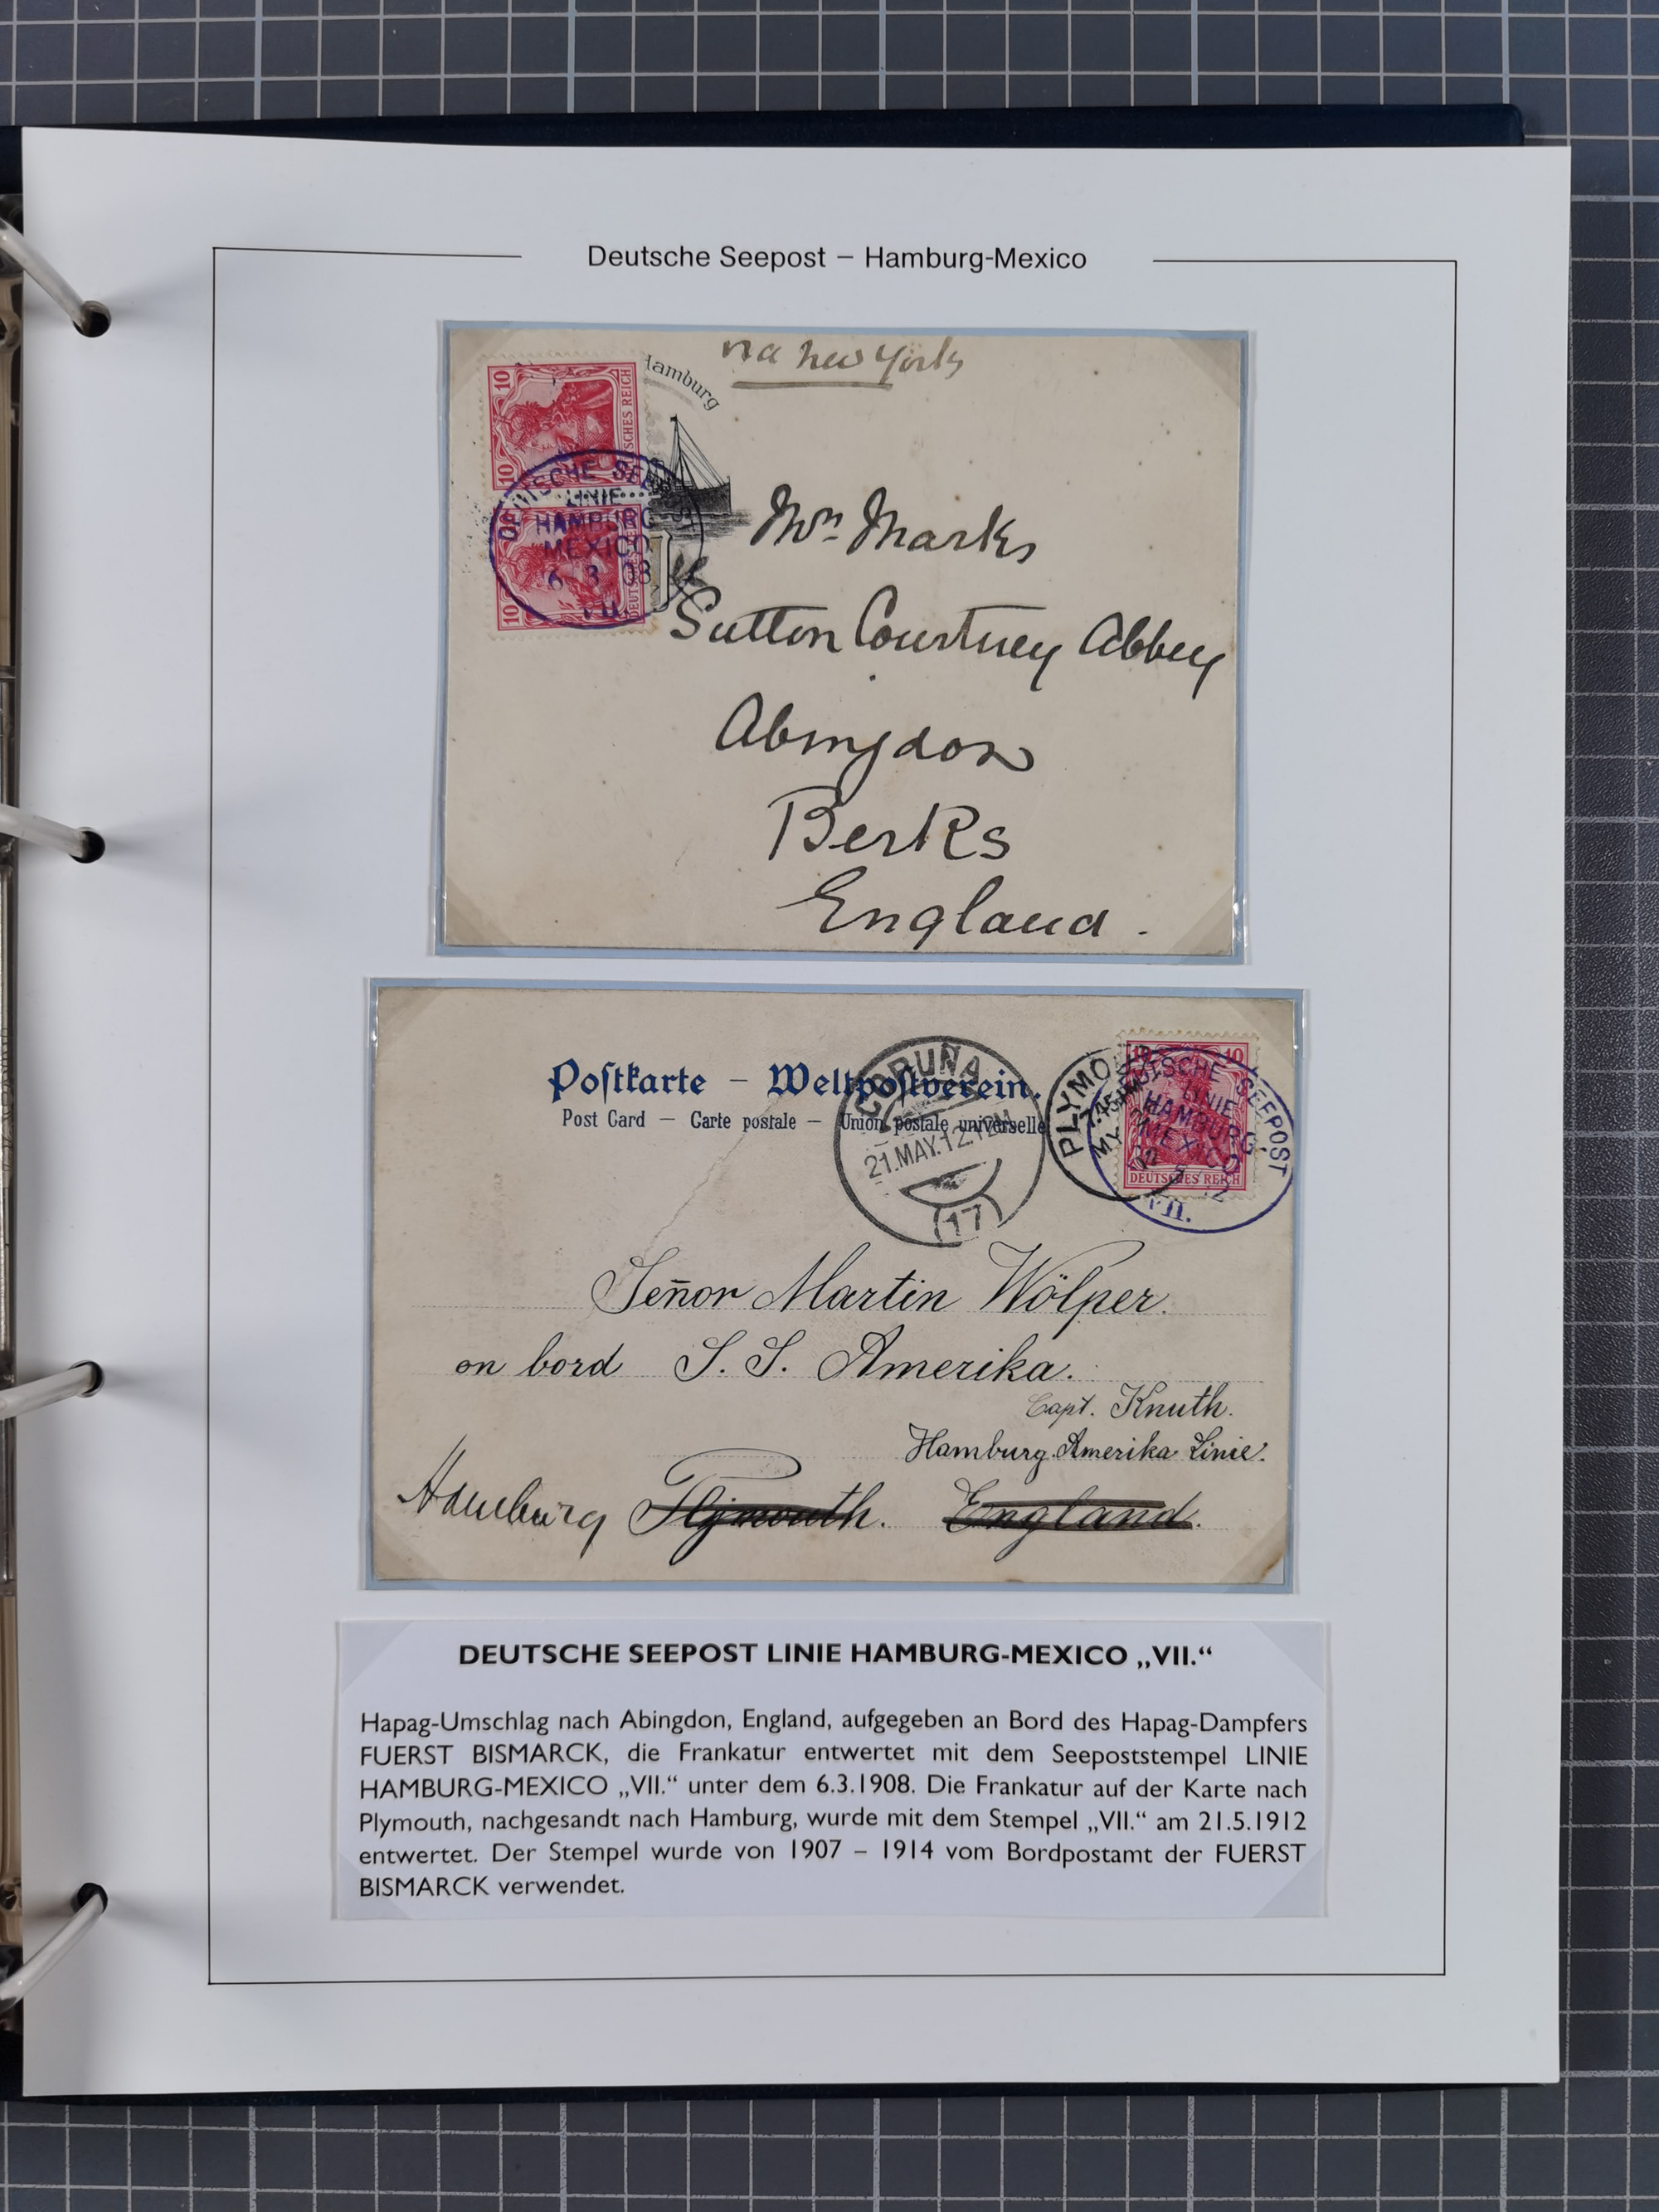 Deutsche Seepost – Hamburg-Mexico
via New York
Hamburg
10
DEUTSCHES REICH
10
DEUTSCHE SEEPOST
LINIE
HAMBURG-
MEXICO
6 3 08
VII.
10
Mrs Marks
Sutton Courtney Abbey
Abingdon
Berks
England.
Postkarte – Weltpostverein.
Post Card – Carte postale – Union postale universelle
CORUÑA
21.MAY.12.12M
(17)
PLYMOUTH
7.45PM
MY
10 10
DEUTSCHES REICH
DEUTSCHE SEEPOST
LINIE
HAMBURG-
MEXICO
VII.
Señor Martin Wölper.
on bord S. S. Amerika.
Capt. Knuth.
Hamburg Amerika Linie.
Hamburg Plymouth. England.
DEUTSCHE SEEPOST LINIE HAMBURG-MEXICO „VII.“
Hapag-Umschlag nach Abingdon, England, aufgegeben an Bord des Hapag-Dampfers
FUERST BISMARCK, die Frankatur entwertet mit dem Seepoststempel LINIE
HAMBURG-MEXICO „VII.“ unter dem 6.3.1908. Die Frankatur auf der Karte nach
Plymouth, nachgesandt nach Hamburg, wurde mit dem Stempel „VII.“ am 21.5.1912
entwertet. Der Stempel wurde von 1907 – 1914 vom Bordpostamt der FUERST
BISMARCK verwendet.